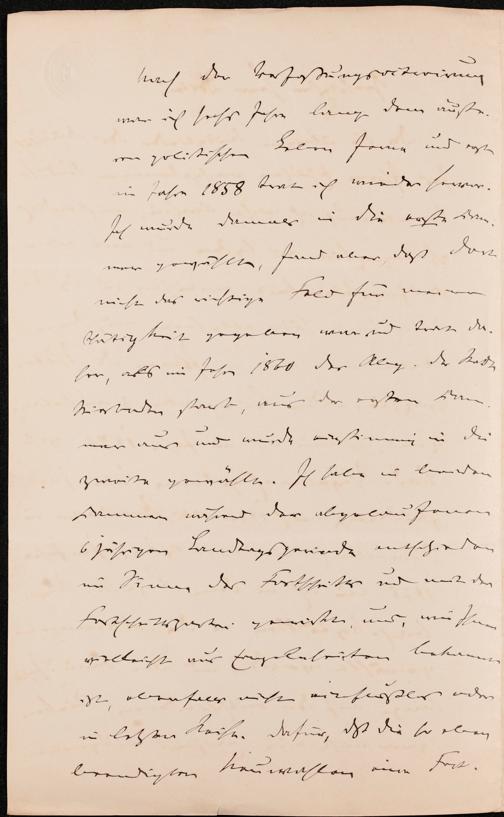 Nach der Verfassungsoctroirung
war ich sechs Jahre lang dem äuße-
ren politischen Leben fern und erst
im Jahre 1858 trat ich wieder hervor.
Ich wurde damals in die erste Kam-
mer gewählt, fand aber, daß dort
nicht das richtige Feld für meine
Thätigkeit gegeben war und trat da-
her, als im Jahre 1860 der Abg. der Stadt
Wiesbaden starb, aus der ersten Kam-
mer aus und wurde einstimmig in die
zweite gewählt. Ich habe in beiden
Kammern während der abgelaufenen
6jährigen Landtagsperiode entschieden
im Sinne des Fortschritts und mit der
Fortschrittspartei gewirkt, und, wie Ihnen
vielleicht aus Einzelnheiten bekannt
ist, ebenfalls nicht einflußlos oder
in letzter Reihe. Dafür, daß die so eben
beendigten Neuwahlen eine Fort-